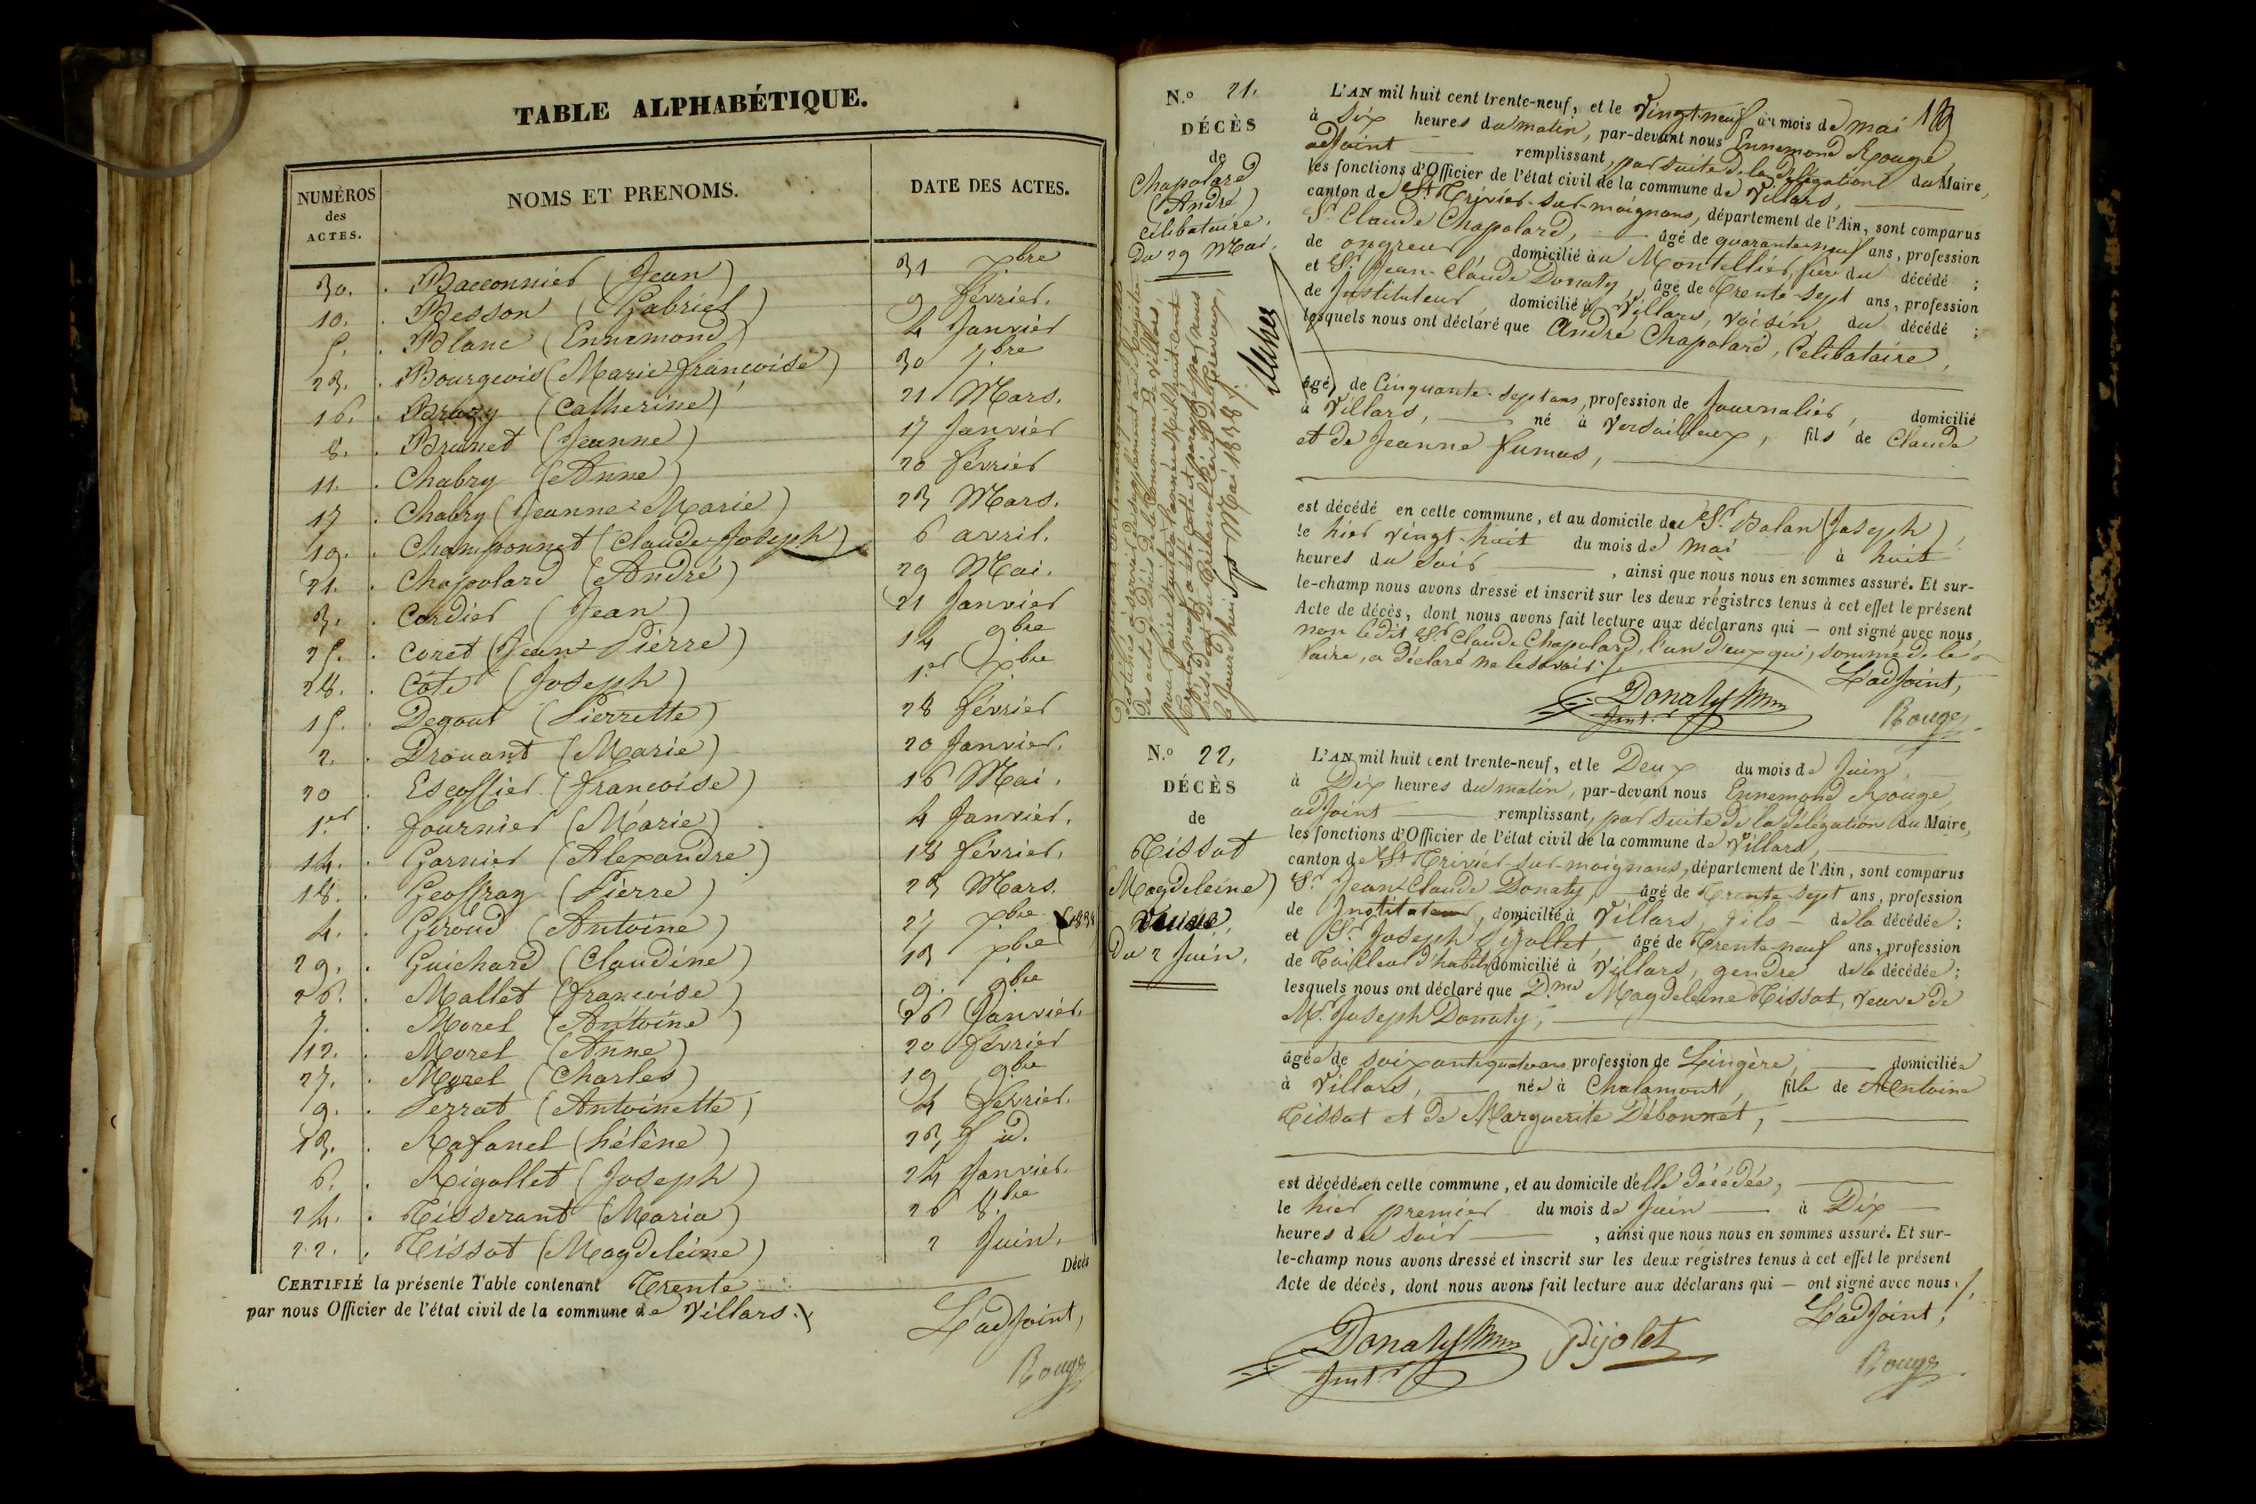 TABLE ALPHABÉTIQUE.
NUMÉROS des ACTES. NOMS ET PRENOMS. DATE DES ACTES.
30. Bacconnier (Jean) 31 xbre
10. Besson (Gabriel) 9 février.
5. Blanc (Ennemond) 4 Janvier
23. Bourgeois (Marie françoise) 30 7bre
16. Brazy (Catherine) 21 Mars.
8. Brunet (Jeanne) 17 Janvier
11. Chabry (Anne) 20 février
17. Chabry (Jeanne-Marie) 23 Mars.
19. Champonnet (Claude-Joseph) 6 avril.
21. Chapolard (André) 29 Mai.
3. Cordier (Jean) 21 Janvier
25. Coret (Jean-Pierre) 14 9bre
28. Côte (Joseph) 1er xbre
15. Degout (Pierrette) 28 février
2. Drouant (Marie) 20 Janvier.
20 Escoffier (françoise) 16 Mai.
1er. fournier (Marie) 4 Janvier.
14. Garnier (Alexandre) 18 février.
18. Geoffray (Pierre) 23 Mars.
4. Giroud (Antoine) 27 xbre (1838
29. Guichard (Claudine) 13 xbre
26. Mallet (françoise) 9. 9bre
7. Morel (Antoine) 26 Janvier.
12. Morel (Anne) 20 février
27. Morel (Charles) 19 9bre
9. Perrat (Antoinette) 4 février.
13. Rafanel (hélène) 23 f id.
6. Rigollet (Joseph) 24 Janvier.
24. Tisserant (Maria) 26 8.bre
22. Tissot (Magdeleine) 2 Juin.
Décès
CERTIFIÉ la présente Table contenant Trente
par nous Officier de l'état civil de la commune de Villars.
L'adjoint,
Rouge
N.° 21.
DÉCÈS
de
Chapolard
(André)
Célibataire.
Du 29 Mai.
L'AN mil huit cent trente-neuf, et le Vingt-neuf du mois de mai
à Six heures du matin, par-devant nous Ennemond Rouge,
adjoint remplissant, par suite de la délégation du Maire,
les fonctions d'Officier de l'état civil de la commune de Villars,
canton de St Trivier-sur-moignans, département de l'Ain, sont comparus
Sr Claude Chapolard, âgé de quarante-neuf ans, profession
de ongreur, domicilié à au Montellier, frère du décédé ;
et Sr Jean-Claude Donaty, âgé de Trente-sept ans, profession
de Instituteur, domicilié à Villars, voisin du décédé ;
lesquels nous ont déclaré que André Chapolard, Célibataire,
âgé de Cinquante-sept ans, profession de Journalier, domicilié
à Villars, né à Versailleux, fils de Claude
et de Jeanne Fumas,
est décédé en cette commune, et au domicile du Sr Balan (Joseph),
le hier vingt-huit du mois de mai à huit
heures du soir, ainsi que nous nous en sommes assuré. Et sur-
le-champ nous avons dressé et inscrit sur les deux régistres tenus à cet effet le présent
Acte de décès, dont nous avons fait lecture aux déclarans qui — ont signé avec nous,
non ledit Sr Claude Chapolard, l'un d'eux qui, sommé de le
faire, a déclaré ne le savoir.
Donaty
Instr
L'adjoint,
Rouge
N.° 22,
DÉCÈS
de
Tissot
(Magdeleine)
Veuve,
Du 2 Juin.
L'AN mil huit cent trente-neuf, et le Deux du mois de Juin
à Dix heures du matin, par-devant nous Ennemond Rouge,
adjoint remplissant, par suite de la délégation du Maire,
les fonctions d'Officier de l'état civil de la commune de Villars,
canton de St Trivier-sur-moignans, département de l'Ain, sont comparus
Sr Jean-Claude Donaty, âgé de Trente-sept ans, profession
de Instituteur, domicilié à Villars, fils de la décédée ;
et Sr Joseph Pijollet, âgé de Trente-neuf ans, profession
de Tailleur d'habits domicilié à Villars, gendre de la décédée ;
lesquels nous ont déclaré que D.me Magdeleine Tissot, veuve de
Mr. Joseph Donaty,
âgée de soixante quatre ans profession de Lingère, domiciliée
à Villars, née à Chalamont, fille de Antoine
Tissot et de Marguerite Débonnet,
est décédée en cette commune, et au domicile d'elle décédée,
le hier premier du mois de Juin à Dix
heures du soir, ainsi que nous nous en sommes assuré. Et sur-
le-champ nous avons dressé et inscrit sur les deux régistres tenus à cet effet le présent
Acte de décès, dont nous avons fait lecture aux déclarans qui — ont signé avec nous.
Donaty
Instr
Pijolet
L'adjoint,
Rouge